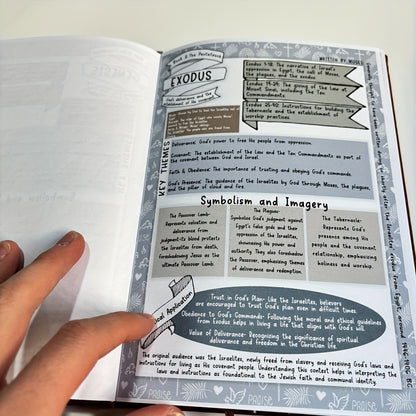 Book 2: The Pentateuch
WRITTEN BY: MOSES
EXODUS
God's deliverance and the
establishment of His covenant
Exodus 1-18: The narrative of Israel's
oppression in Egypt, the call of Moses,
the plagues, and the exodus.
Exodus 19-24: The giving of the Law at
Mount Sinai, including the Ten
Commandments.
Exodus 25-40: Instructions for building the
Tabernacle and the establishment of
worship practices.
KEY THEMES
Deliverance: God's power to free His people from oppression.
Covenant: The establishment of the Law and the Ten Commandments as part of
the covenant between God and Israel.
Faith & Obedience: The importance of trusting and obeying God's commands.
God's Presence: The guidance of the Israelites by God through Moses, the plagues,
and the pillar of cloud and fire.
Symbolism and Imagery
The Passover Lamb-
Represents salvation and
deliverance from
judgment-its blood protects
the Israelites from death,
foreshadowing Jesus as the
ultimate Passover Lamb.
The Plagues-
Symbolize God's judgment against
Egypt's false gods and their
oppression of the Israelites,
showcasing His power and
authority. They also foreshadow
the Passover, emphasizing themes
of deliverance and redemption.
The Tabernacle-
Represents God's
presence among His
people and the covenant
relationship, emphasizing
holiness and worship.
Application
Trust in God's Plan- Like the Israelites, believers
are encouraged to trust God's plan even in difficult times.
Obedience to God's Commands- Following the moral and ethical guidelines
from Exodus helps in living a life that aligns with God's will.
Value of Deliverance- Recognizing the significance of spiritual
deliverance and freedom in the Christian life.
The original audience was the Israelites, newly freed from slavery and receiving God's laws and
instructions for living as His covenant people. Understanding this context helps in interpreting the
laws and instructions as foundational to the Jewish faith and communal identity.
PRAISE
PRAISE